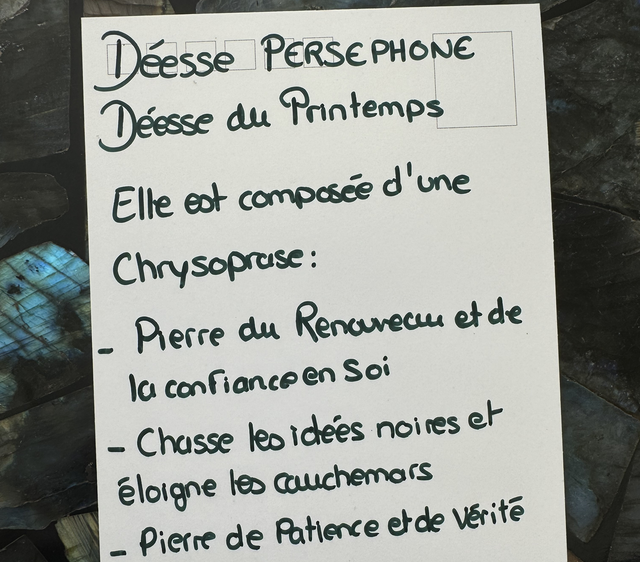 Déesse PERSEPHONE
Déesse du Printemps
Elle est composée d'une
Chrysoprase :
- Pierre du Renouveau et de
la confiance en Soi
- Chasse les idées noires et
éloigne les cauchemars
- Pierre de Patience et de Vérité